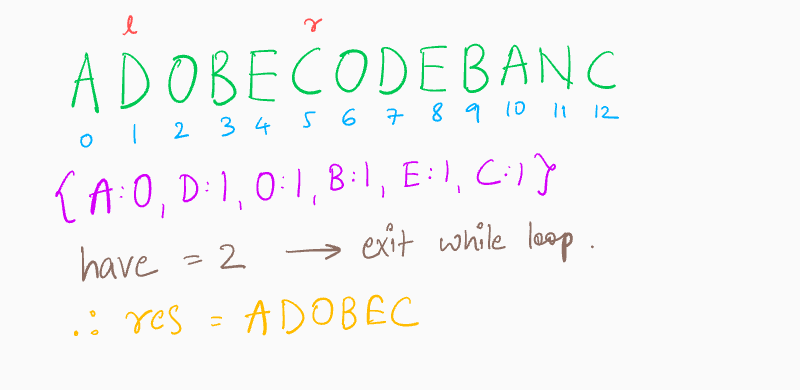 l r
ADOBECODEBANC
0 1 2 3 4 5 6 7 8 9 10 11 12
{A:0, D:1, O:1, B:1, E:1, C:1}
have = 2 → exit while loop.
∴ res = ADOBEC